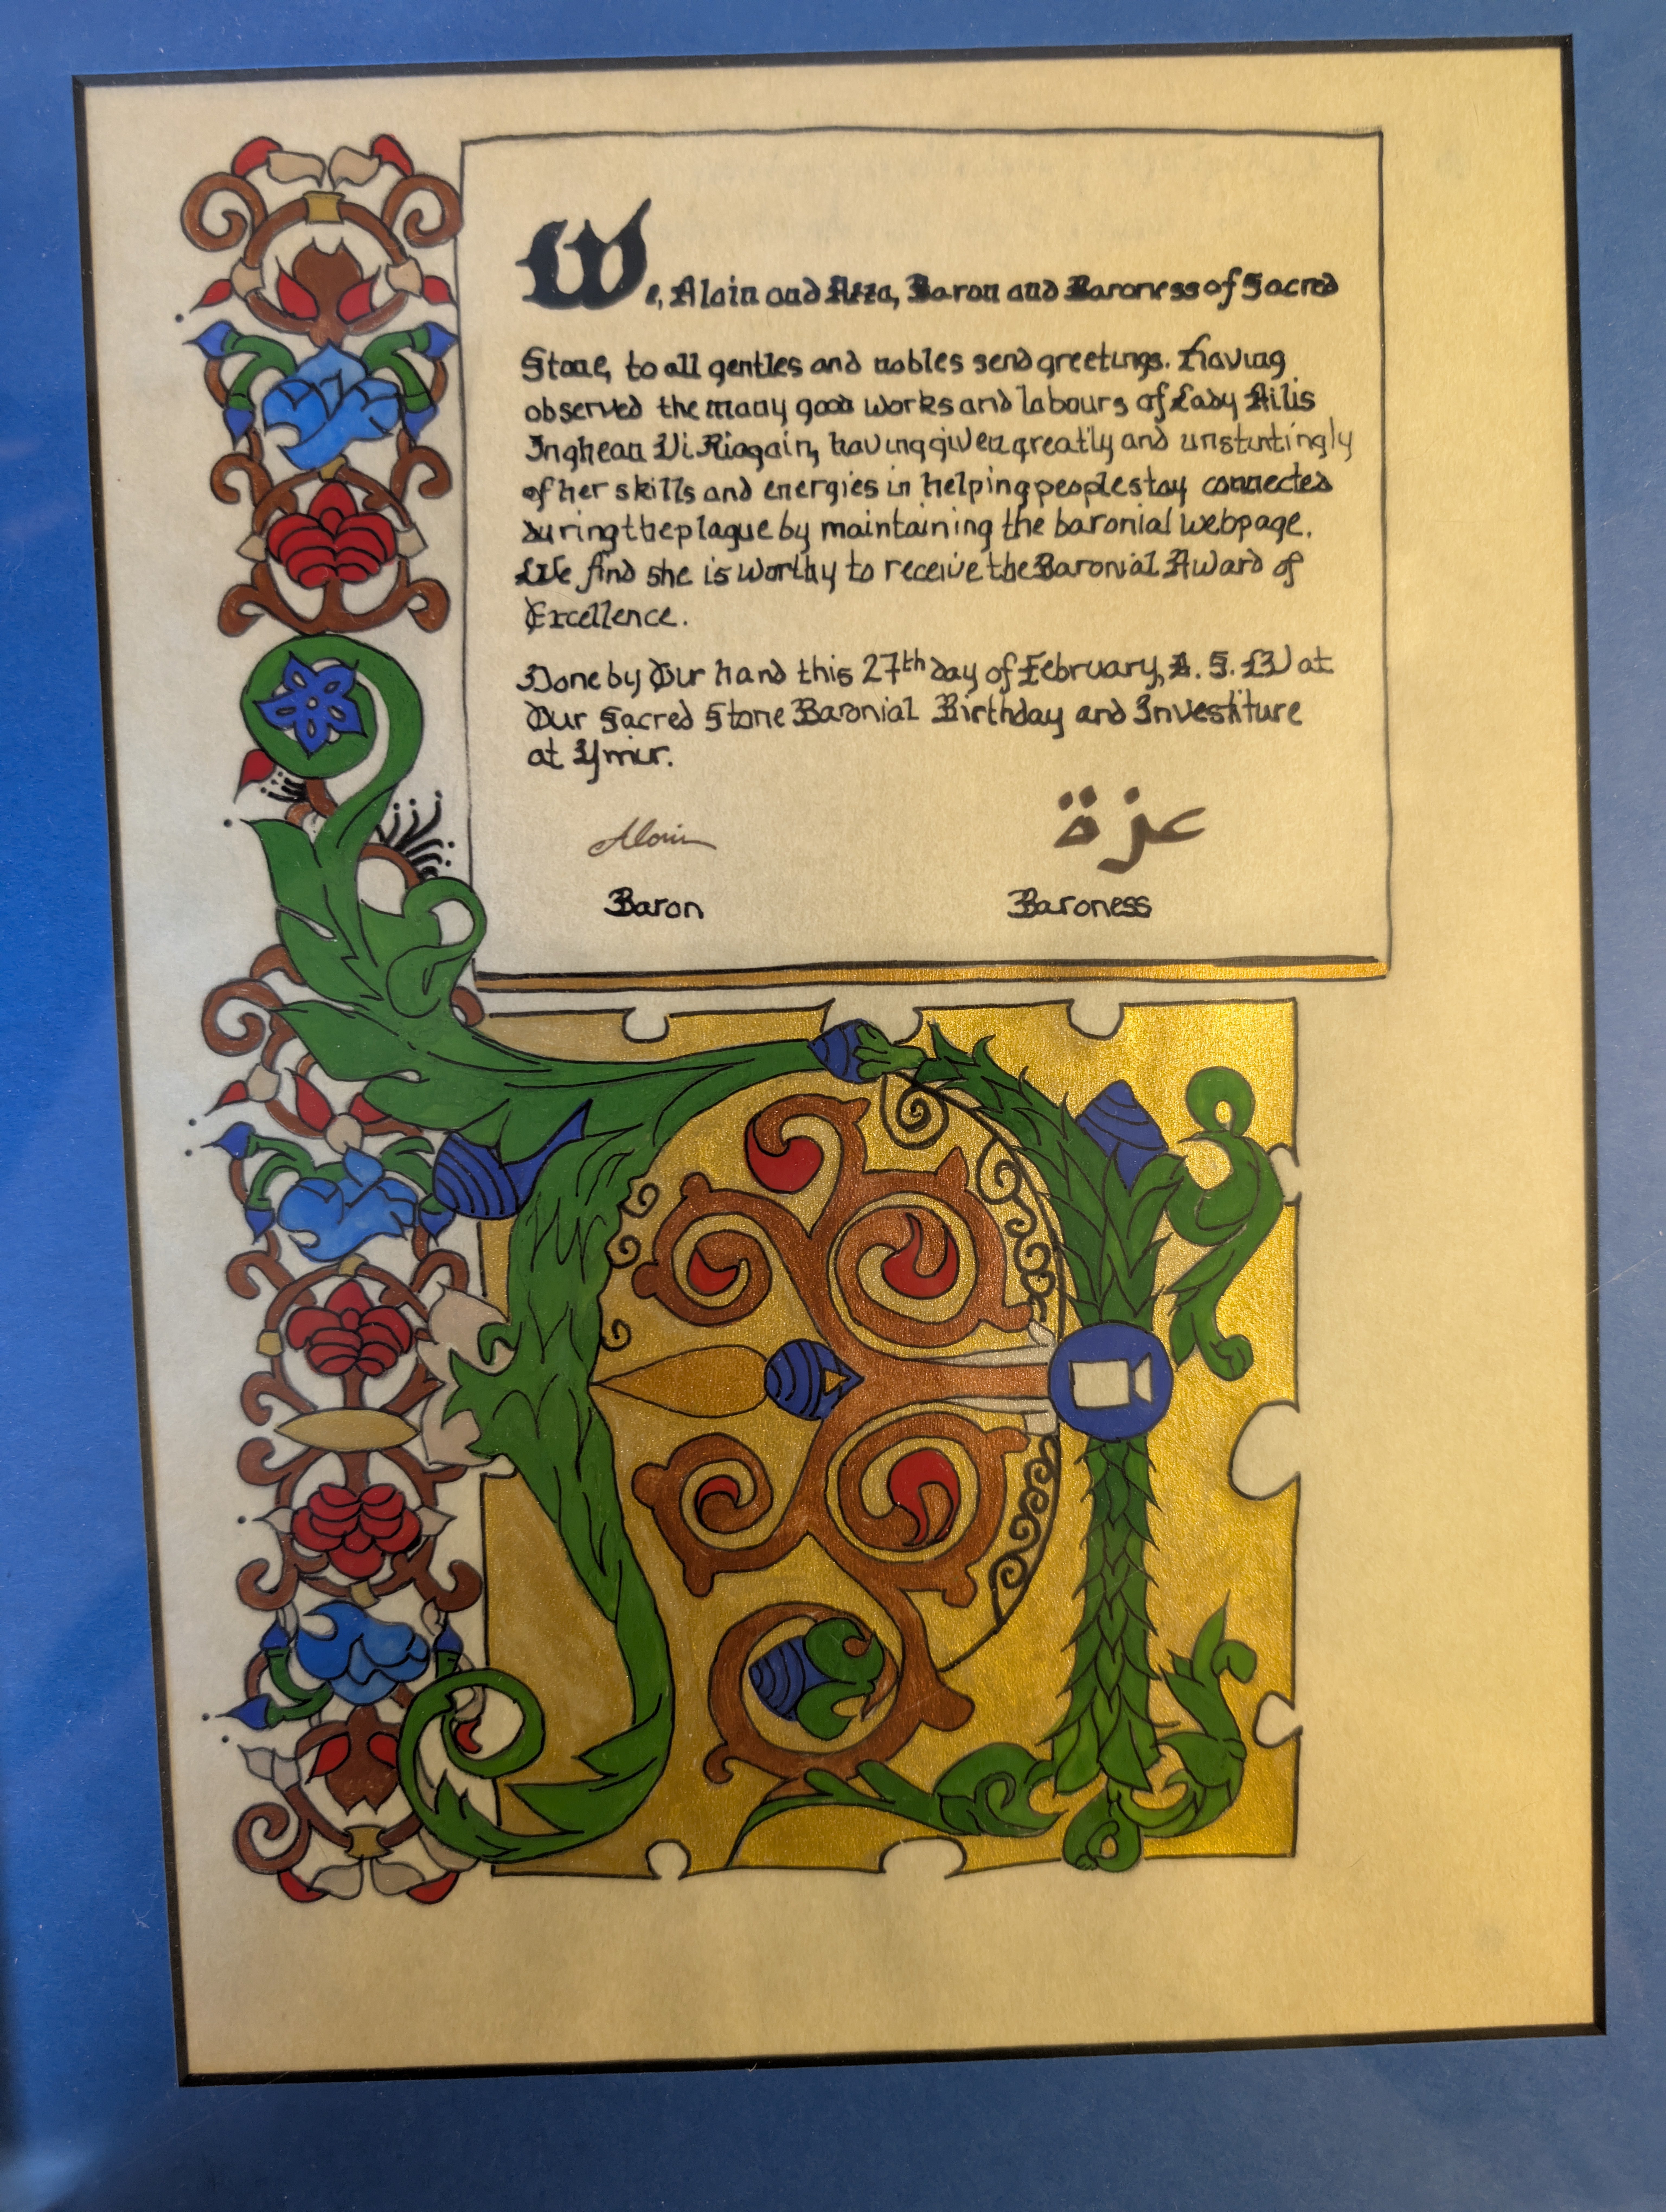 We, Alain and Azza, Baron and Baroness of Sacred
Stone, to all gentles and nobles send greetings. Having
observed the many good works and labours of Lady Ailis
Inghean Ui Riagain, having given greatly and unstintingly
of her skills and energies in helping people stay connected
during the plague by maintaining the baronial webpage.
We find she is worthy to receive the Baronial Award of
Excellence.
Done by Our hand this 27th day of February, A. S. LVI at
Our Sacred Stone Baronial Birthday and Investiture
at Ymir.
Alain
عزة
Baron
Baroness